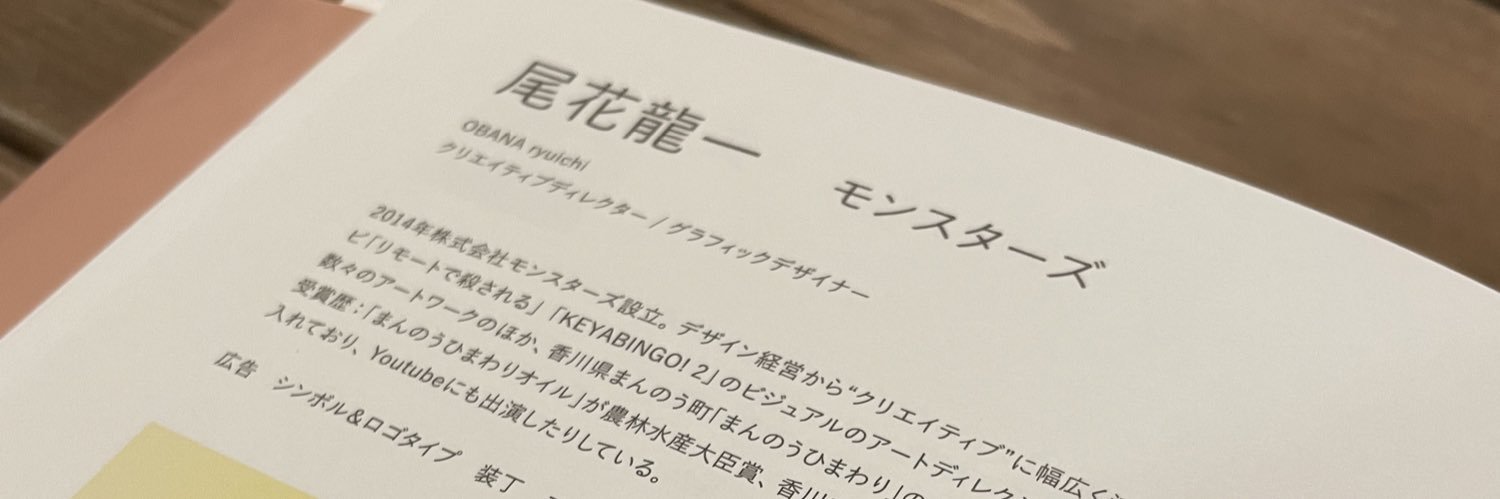 尾花龍一　モンスターズ
OBANA ryuichi
クリエイティブディレクター / グラフィックデザイナー
2014年株式会社モンスターズ設立。デザイン経営から“クリエイティブ”に幅広く
ビ「リモートで殺される」「KEYABINGO! 2」のビジュアルのアートディレク
数々のアートワークのほか、香川県まんのう町「まんのうひまわり」の
受賞歴：「まんのうひまわりオイル」が農林水産大臣賞、香川
入れており、Youtubeにも出演したりしている。
広告　シンボル&ロゴタイプ　装丁